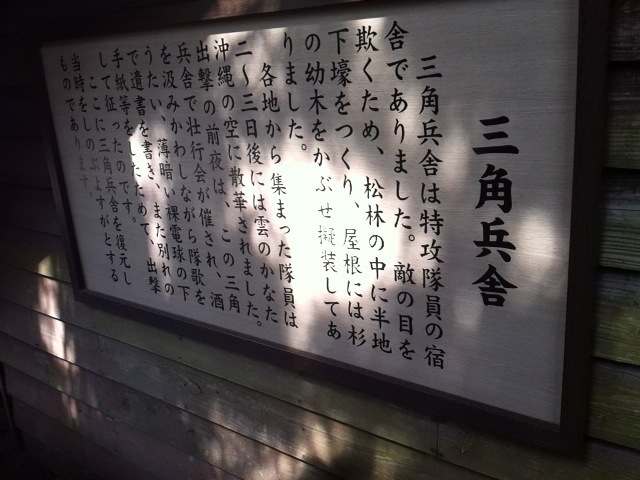 三角兵舎
三角兵舎は特攻隊員の宿
舎でありました。敵の目を
欺くため、松林の中に半地
下壕をつくり、屋根には杉
の幼木をかぶせ擬装してあ
りました。
各地から集まった隊員は
二〜三日後には雲のかなた
沖縄の空に散華されました。
出撃の前夜は、この三角
兵舎で壮行会が催され、酒
を汲みかわしながら隊歌を
うたい、薄暗い裸電球の下
で遺書を書き、また別れの
手紙等をしたためて、出撃
して征ったのです。
ここに三角兵舎を復元し
当時をしのぶよすがとする
ものであります。